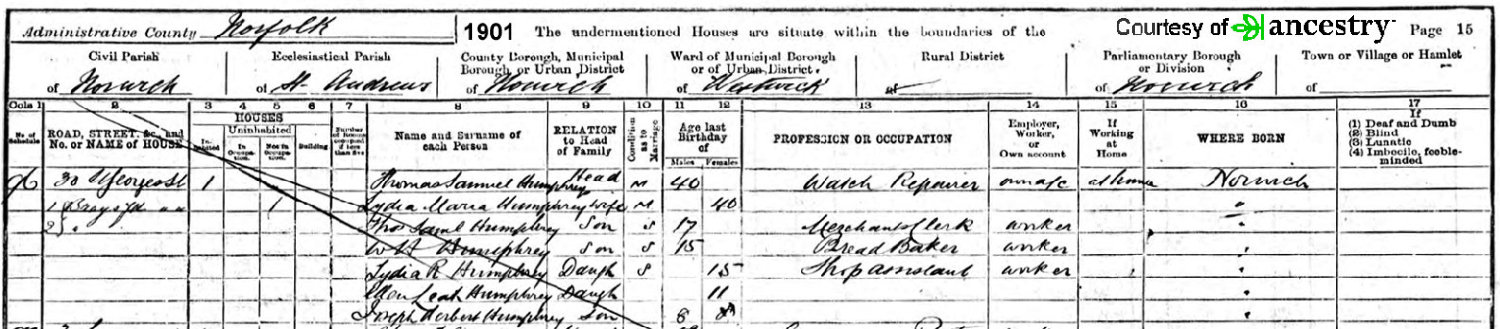 Administrative County Norfolk 1901 The undermentioned Houses are situate within the boundaries of the Courtesy of ancestry Page 15
Civil Parish Ecclesiastical Parish County Borough, Municipal Borough, or Urban District Ward of Municipal Borough or of Urban District Rural District Parliamentary Borough or Division Town or Village or Hamlet
of Norwich of St. Andrews of Norwich of Westwick of of Norwich of
Cols 1 2 3 4 5 6 7 8 9 10 11 12 13 14 15 16 17
No. of Schedule ROAD, STREET, &c., and No. or NAME of HOUSE HOUSES Inhabited Uninhabited In Occupation. Not in Occupation. Building Number of Rooms occupied if less than five Name and Surname of each Person RELATION to Head of Family Condition as to Marriage Age last Birthday of Males Females PROFESSION OR OCCUPATION Employer, Worker, or Own account If Working at Home WHERE BORN If (1) Deaf and Dumb (2) Blind (3) Lunatic (4) Imbecile, feeble-minded
30 Georges St 1 Thomas Samuel Humphrey Head M 40 Watch Repairer own a/c at home Norwich
1 Brays Yd 1 Lydia Maria Humphrey Wife M 40 "
2 Thos Saml Humphrey Son S 17 Merchants Clerk worker "
W H Humphrey Son S 15 Bread Baker worker "
Lydia R Humphrey Daugh S 15 Shop assistant worker "
Ellen Leah Humphrey Daugh 11 "
Joseph Herbert Humphrey Son 8 "